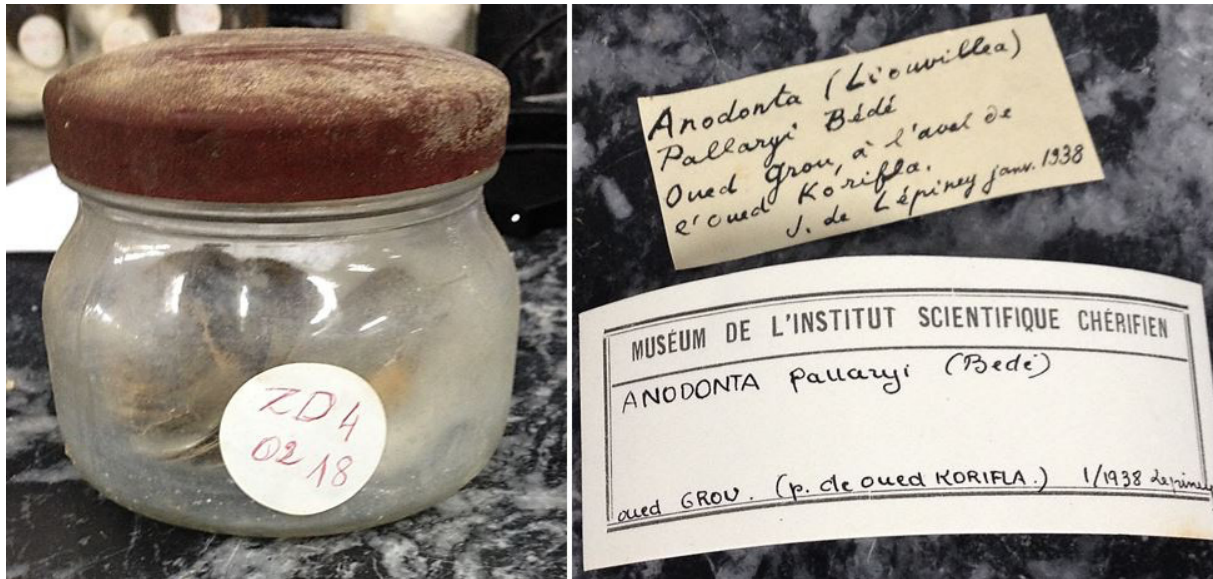 ZD4
02 18
Anodonta (Liouvillea)
Pallaryi Bédé
Oued Grou, à l'aval de
l'oued Korifla.
J. de Lépiney janv. 1938
MUSÉUM DE L'INSTITUT SCIENTIFIQUE CHÉRIFIEN
ANODONTA Pallaryi (Bedé)
oued GROU. (p. de oued KORIFLA.) 1/1938 Lepiney